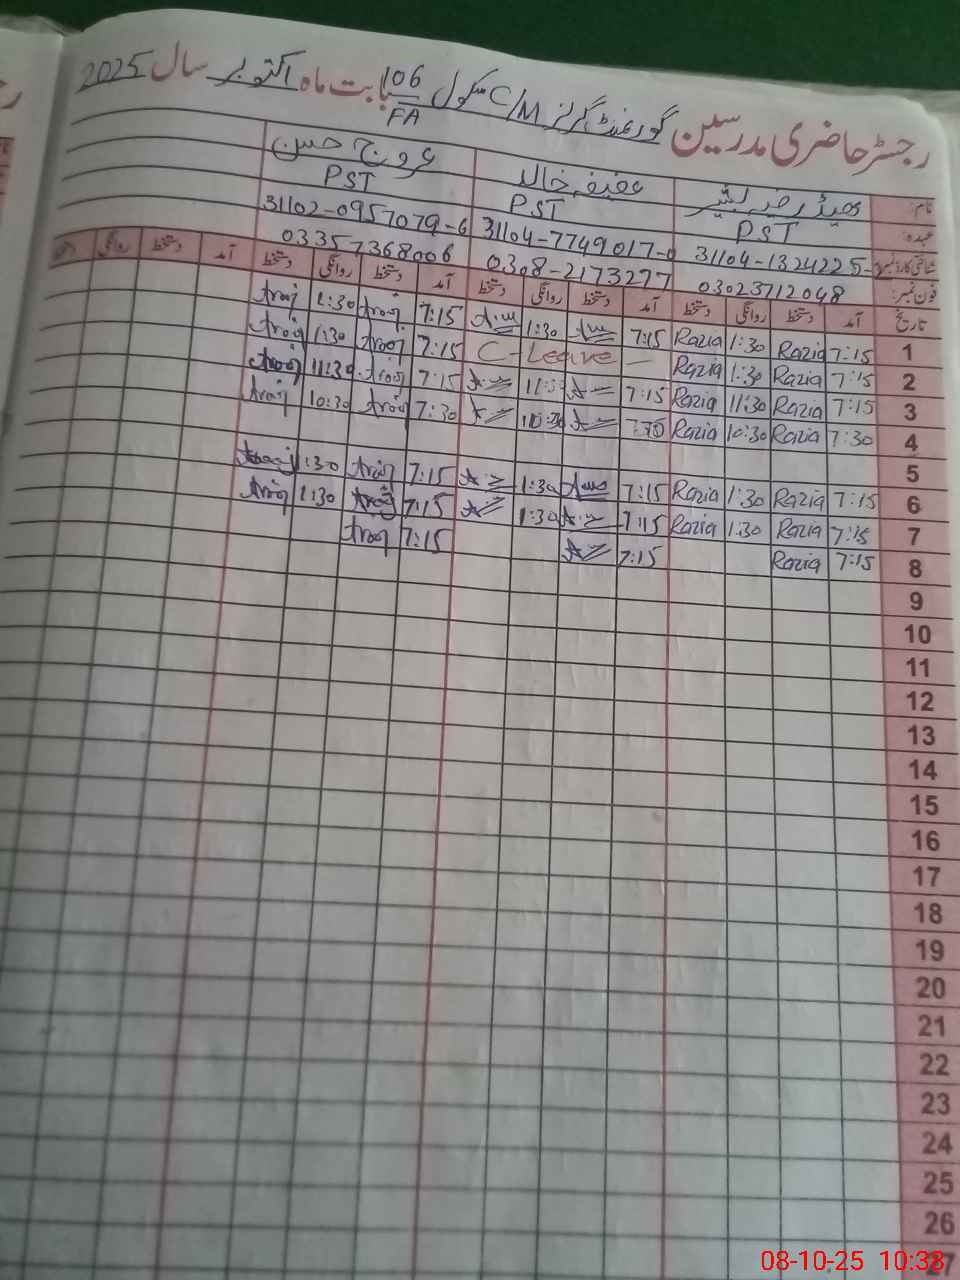 رجسٹر حاضری مدرسین گورنمنٹ گرلز C/M سکول 106/FA بابت ماہ اکتوبر سال 2025
نام: رضیہ عفیفہ خالد عروج حسن
عہدہ: PST PST PST
شناختی کارڈ نمبر: 31104-1324225- 31104-7749017-0 31102-0957079-6
فون نمبر: 03023712048 0308-2173277 03357368006
تاریخ آمد دستخط روانگی دستخط آمد دستخط روانگی دستخط آمد دستخط روانگی دستخط آمد دستخط روانگی دستخط
1 7:15 Razia 1:30 Razia 7:15 1:30 7:15 Arooj 1:30 Arooj
2 7:15 Razia 1:30 Razia C-Leave 7:15 Arooj 1:30 Arooj
3 7:15 Razia 11:30 Razia 7:15 11:30 7:15 Arooj 11:30 Arooj
4 7:30 Razia 10:30 Razia 7:30 10:30 7:30 Arooj 10:30 Arooj
5
6 7:15 Razia 1:30 Razia 7:15 1:30 7:15 Arooj 1:30 Arooj
7 7:15 Razia 1:30 Razia 7:15 1:30 7:15 Arooj 1:30 Arooj
8 7:15 Razia 7:15 7:15 Arooj
9
10
11
12
13
14
15
16
17
18
19
20
21
22
23
24
25
26
27
08-10-25 10:38